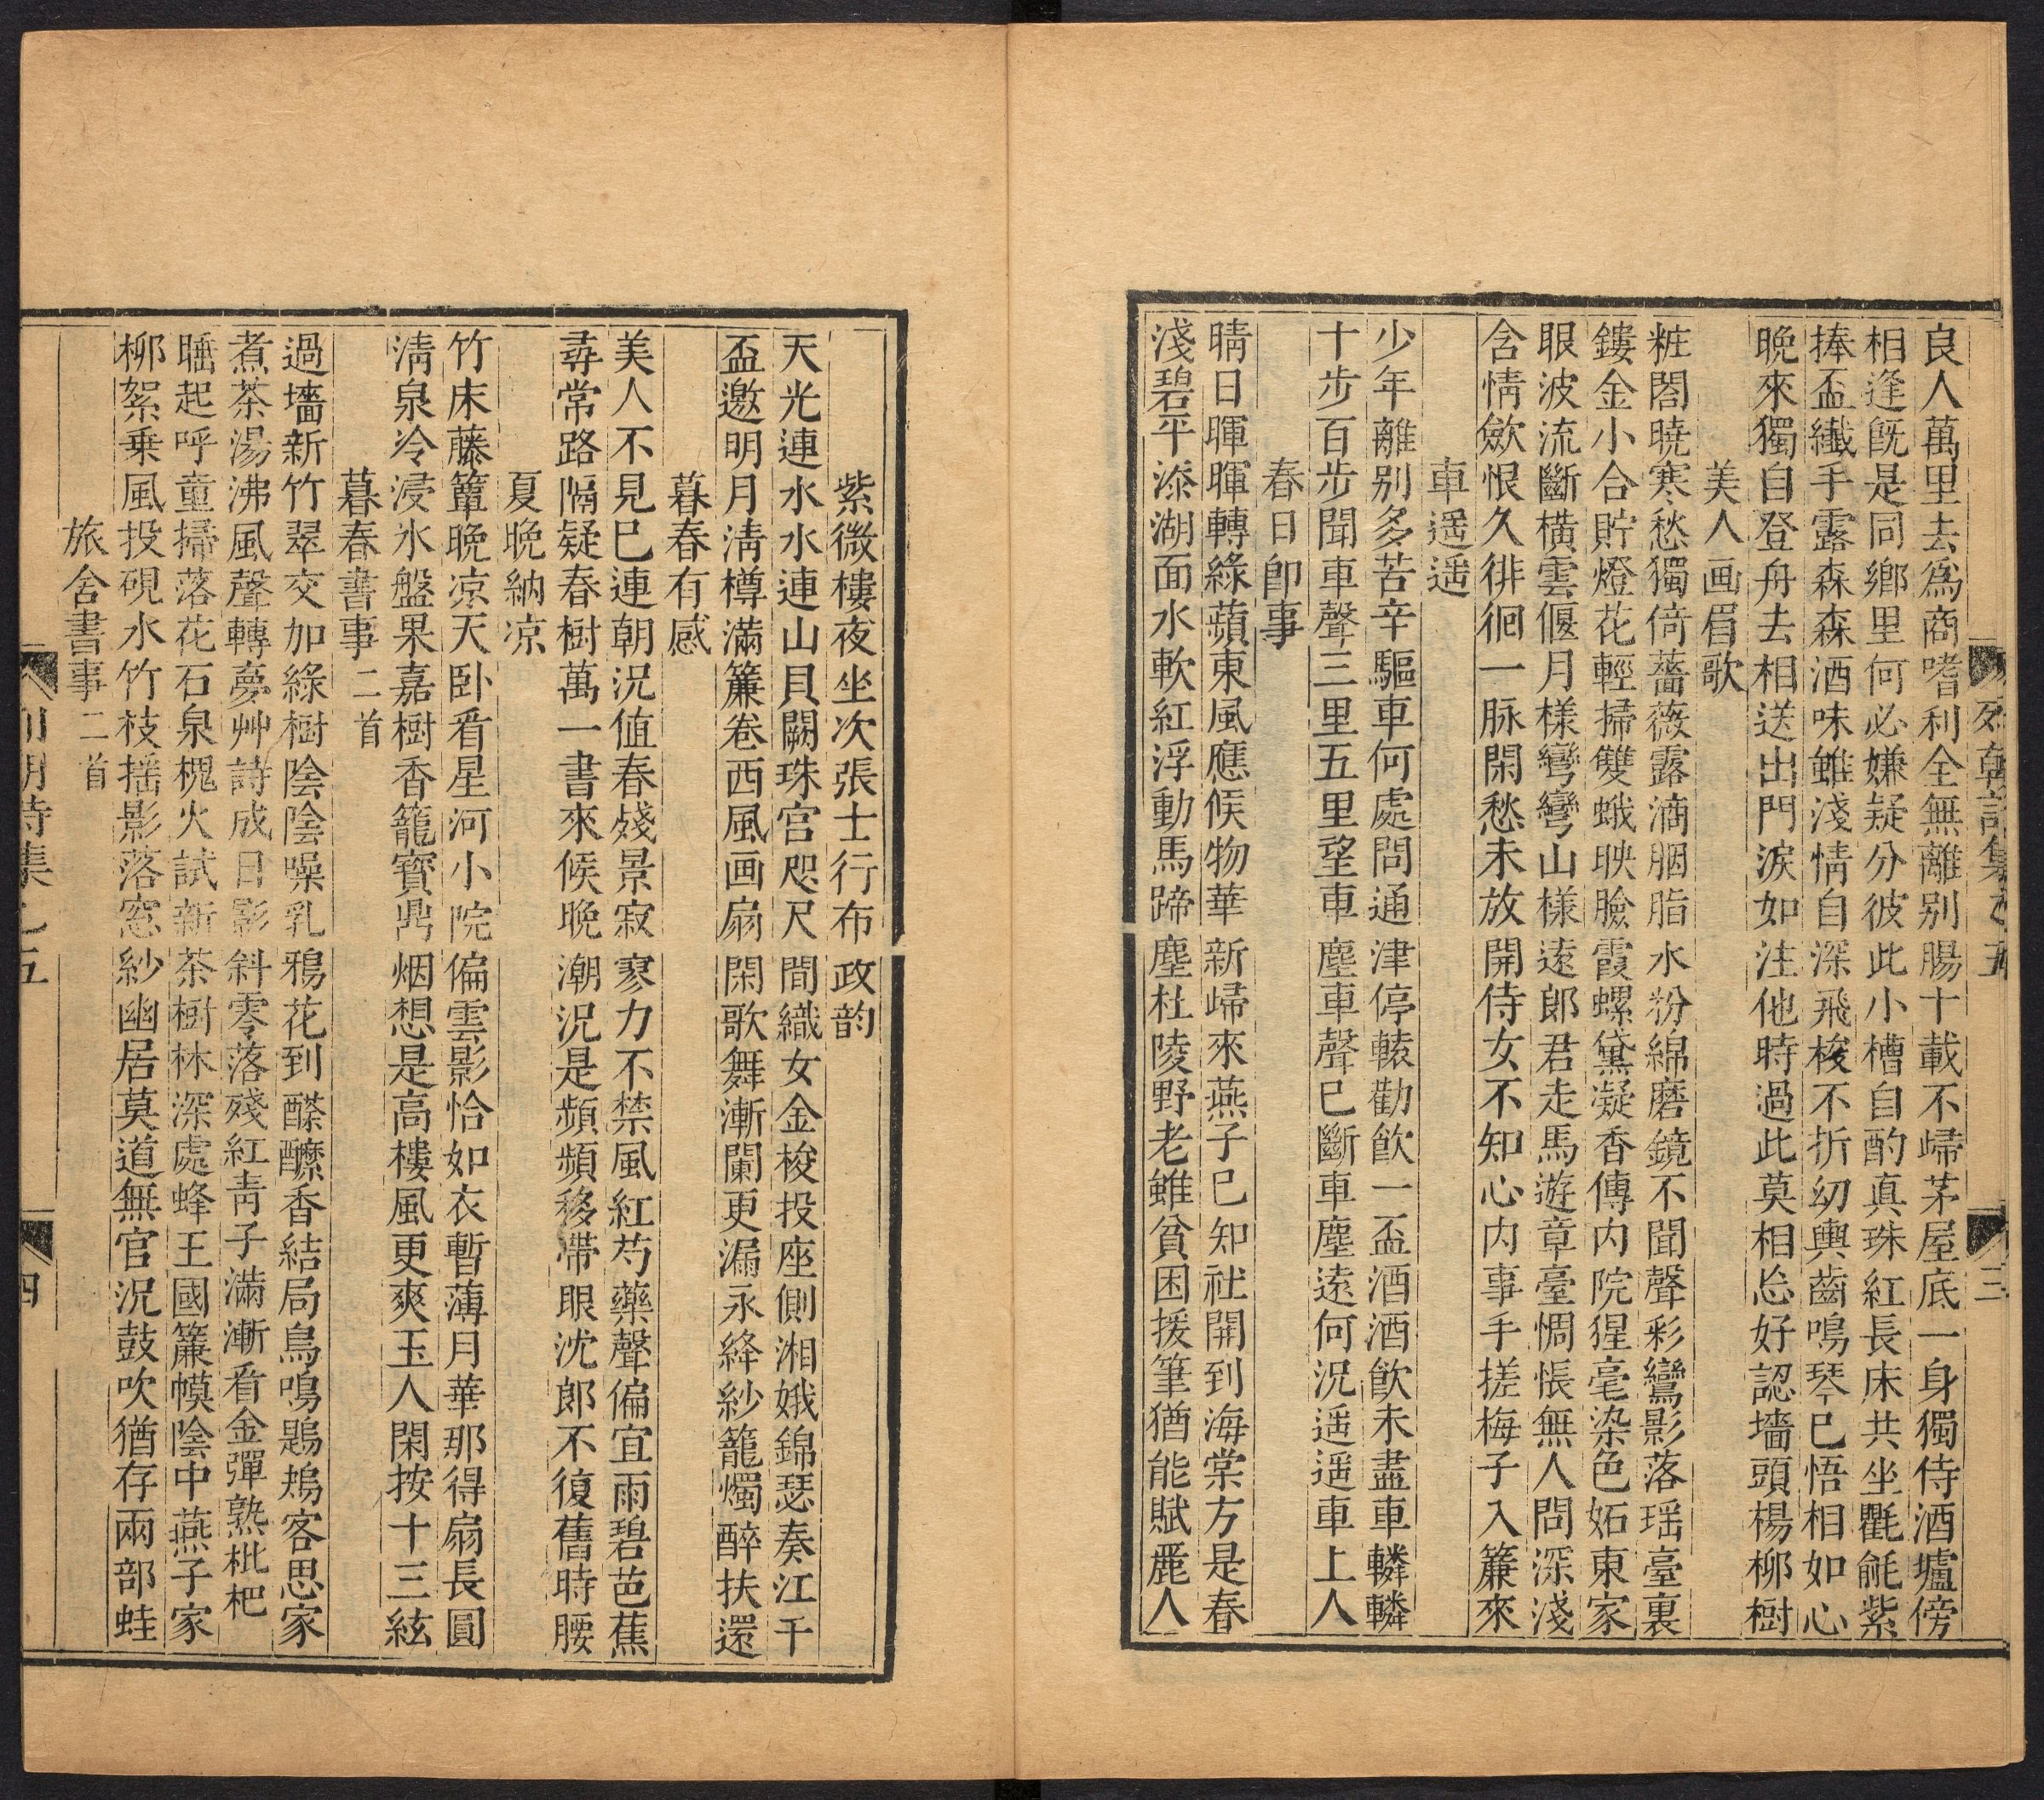 良人萬里去爲商嗜利全無離别腸十載不歸茅屋底一身獨侍酒壚傍
相逢既是同鄉里何必嫌疑分彼此小槽自酌真珠紅長床共坐氍毹紫
捧盃纖手露森森酒味雖淺情自深飛梭不折幼輿齒鳴琴已悟相如心
晩來獨自登舟去相送出門淚如注他時過此莫相忘好認墻頭楊柳樹
美人画眉歌
粧閣曉寒愁獨倚薔薇露滴胭脂水粉綿磨鏡不聞聲彩鸞影落瑶臺裏
鏤金小合貯燈花輕掃雙蛾映臉霞螺黛凝香傳内院猩毫染色妬東家
眼波流斷横雲偃月様彎彎山様遠郎君走馬遊章臺惆悵無人問深淺
含情歛恨久徘徊一脉閑愁未放開侍女不知心内事手搓梅子入簾來
車遥遥
少年離别多苦辛驅車何處問通津停轅勸飲一盃酒酒飲未盡車轔轔
十步百步聞車聲三里五里望車塵車聲已斷車塵遠何況遥遥車上人
春日卽事
晴日暉暉轉綠蘋東風應候物華新歸來燕子已知社開到海棠方是春
淺碧平添湖面水軟紅浮動馬蹄塵杜陵野老雖貧困援筆猶能賦麗人
列朝詩集乙五
三
紫微樓夜坐次張士行布政韵
天光連水水連山貝闕珠宫咫尺間織女金梭投座側湘娥錦瑟奏江干
盃邀明月淸樽滿簾卷西風画扇閑歌舞漸闌更漏永絳紗籠燭醉扶還
暮春有感
美人不見已連朝況值春殘景寂寥力不禁風紅芍藥聲偏宜雨碧芭蕉
尋常路隔疑春樹萬一書來候晩潮況是頻頻移帶眼沈郎不復舊時腰
夏晩納凉
竹床藤簟晩凉天卧看星河小院偏雲影恰如衣暫薄月華那得扇長圓
淸泉冷浸氷盤果嘉樹香籠寶鼎烟想是高樓風更爽玉人閑按十三絃
暮春書事二首
過墻新竹翠交加綠樹陰陰噪乳鴉花到醿醾香結局鳥鳴鶗鴂客思家
煮茶湯沸風聲轉夢艸詩成日影斜零落殘紅青子滿漸看金彈熟枇杷
睡起呼童掃落花石泉槐火試新茶樹林深處蜂王國簾幙陰中燕子家
柳絮乗風投硯水竹枝揺影落窓紗幽居莫道無官況鼓吹猶存兩部蛙
旅舍書事二首
列朝詩集乙五
四